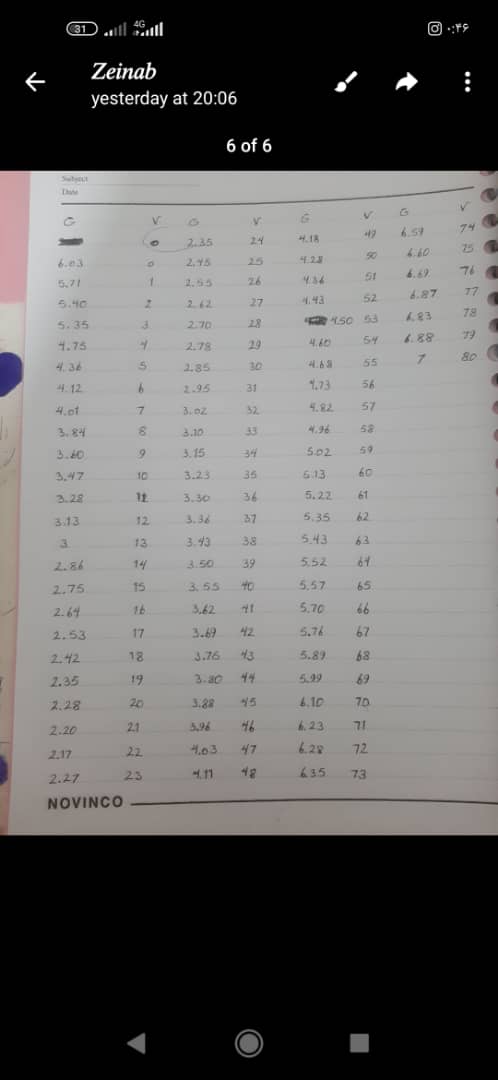 31 4G ۰:۴۶
Zeinab
yesterday at 20:06
6 of 6
Subject
Date
G V G V G V G V
0 2.35 24 4.18 49 6.59 74
6.03 0 2.45 25 4.28 50 6.60 75
5.71 1 2.55 26 4.36 51 6.69 76
5.40 2 2.62 27 4.43 52 6.87 77
5.35 3 2.70 28 4.50 53 6.83 78
4.75 4 2.78 29 4.60 54 6.88 79
4.36 5 2.85 30 4.68 55 7 80
4.12 6 2.95 31 4.73 56
4.01 7 3.02 32 4.82 57
3.84 8 3.10 33 4.96 58
3.60 9 3.15 34 5.02 59
3.47 10 3.23 35 5.13 60
3.28 11 3.30 36 5.22 61
3.13 12 3.36 37 5.35 62
3 13 3.43 38 5.43 63
2.86 14 3.50 39 5.52 64
2.75 15 3.55 40 5.57 65
2.64 16 3.62 41 5.70 66
2.53 17 3.69 42 5.76 67
2.42 18 3.76 43 5.89 68
2.35 19 3.80 44 5.99 69
2.28 20 3.88 45 6.10 70
2.20 21 3.96 46 6.23 71
2.17 22 4.03 47 6.28 72
2.27 23 4.11 48 6.35 73
NOVINCO